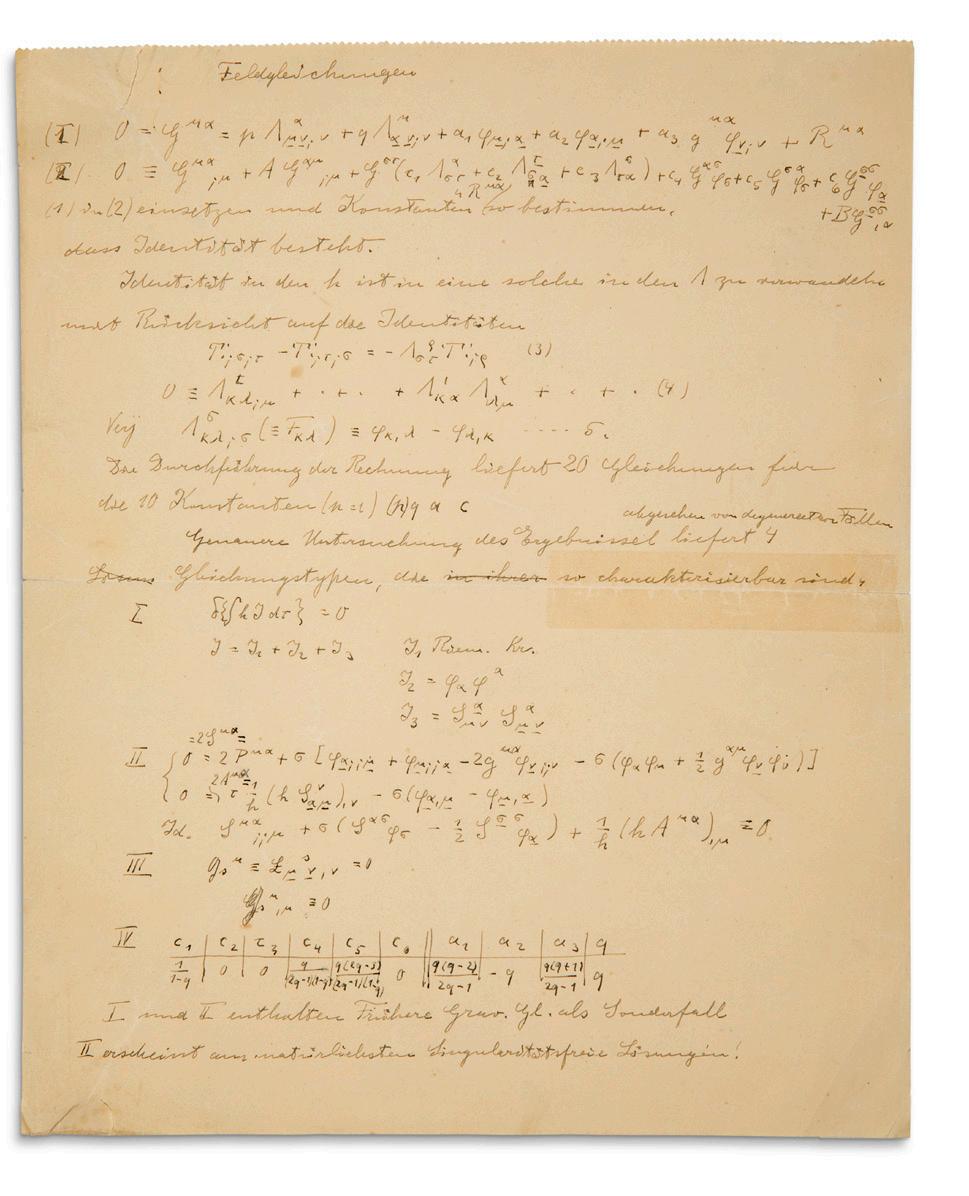 Feldgleichungen
(1) 0 = G^{μα} = p Λ^α_{μν;ν} + q Λ^μ_{αν;ν} + a₁ φ_{μ;α} + a₂ φ_{α;μ} + a₃ g^{μα} φ_{ν;ν} + R^{μα}
(2) 0 ≡ G^{μα}_{;μ} + A G^{αμ}_{;μ} + G^{στ}(c₁ Λ^α_{στ} + c₂ Λ^τ_{σα} + c₃ Λ^σ_{τα}) + c₄ G^{ασ} φ_σ + c₅ G^{σα} φ_σ + c₆ G^{σσ} φ_α
+ B G^{σσ}_{,α}
(1) in (2) einsetzen und Konstanten so bestimmen,
dass Identität besteht.
Identität in den h ist in eine solche in den Λ zu verwandeln
mit Rücksicht auf die Identitäten
T^{·}_{·;σ;τ} − T^{·}_{·;τ;σ} = − Λ^ϱ_{στ} T^{·}_{·;ϱ} (3)
0 ≡ Λ^ι_{κλ;μ} + · + · + Λ^ι_{κα} Λ^α_{λμ} + · + · (4)
Λ^σ_{κλ;σ} (≡ F_{κλ}) ≡ φ_{κ,λ} − φ_{λ,κ} ····· 5.
Die Durchführung der Rechnung liefert 20 Gleichungen für
die 10 Konstanten (p=1) (p) q a c
abgesehen von degenerierten Fällen
Genauere Untersuchung des Ergebnisses liefert 4
Gleichungstypen, die in ihrer so charakterisierbar sind,
I δ{∫ h J dτ} = 0
J = J₁ + J₂ + J₃ J₁ Riem. Kr.
J₂ = φ_α φ^α
J₃ = S^α_{μν} S^α_{μν}
= 2S^{μα} =
II 0 = 2 P^{μα} + σ [φ_{α;;μ} + φ_{μ;;α} − 2g^{μα} φ_{ν;;ν} − σ (φ_α φ_μ + ½ g^{αμ} φ_ν φ_ν)]
2A^{μα} =
0 = τ 1/h (h S^ν_{αμ})_{,ν} − σ(φ_{α,μ} − φ_{μ,α})
Id. S^{μα}_{;;μ} + σ (S^{ασ} φ_σ − ½ S^{σσ} φ_α) + 1/h (h A^{μα})_{,μ} ≡ 0
III G_s^μ ≡ L^s_{μν,ν} = 0
G_s^μ_{,μ} ≡ 0
IV c₁ | c₂ | c₃ | c₄ | c₅ | c₆ || a₁ | a₂ | a₃ | q
1/(1−q) | 0 | 0 | q/((2q−1)(1−q)) | q(2q−3)/((2q−1)(1−q)) | 0 || q(q−2)/(2q−1) | −q | q(q+1)/(2q−1) | q
I und II enthalten Frühere Grav. Gl. als Sonderfall
II erscheint am natürlichsten Singularitätsfreie Lösungen!